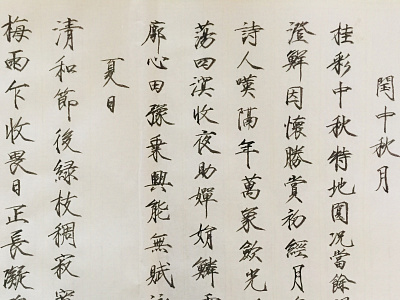 閏中秋月
桂彩中秋特地圓況當餘
澄鮮因懷勝賞初經月
詩人嘆隔年萬象斂光
蕩四溟收夜助嬋娟鱗
廓心田豫乘興能無賦
夏日
清和節後綠枝稠寂
梅雨乍收畏日正長凝